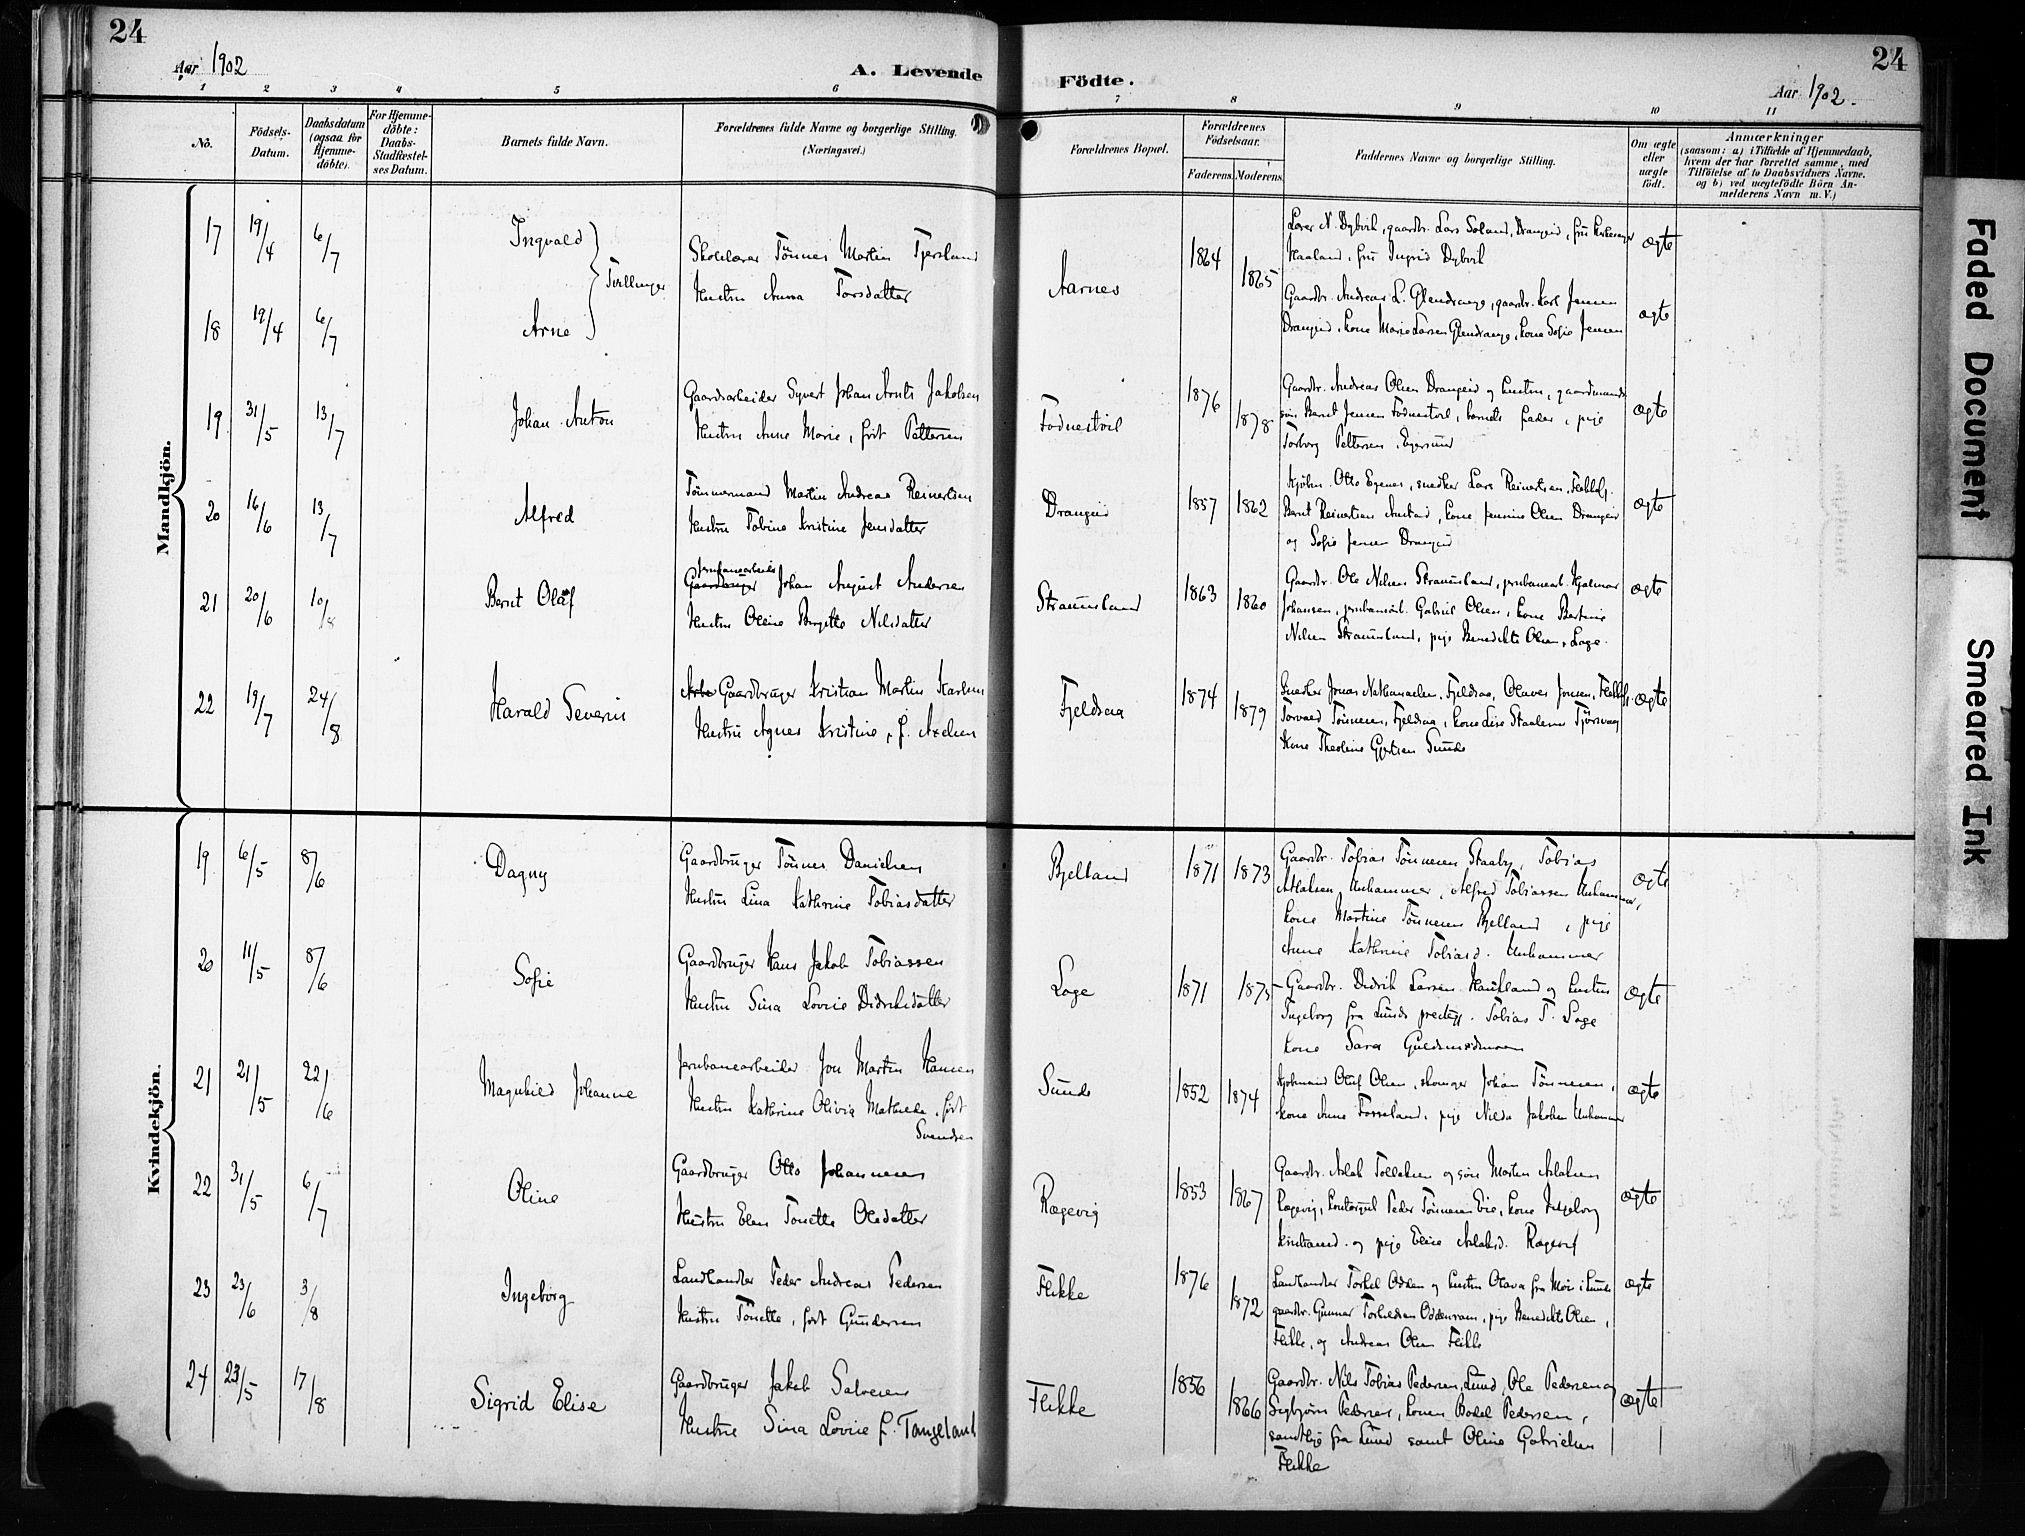 24
Aar 1902
A. Levende
Födte.
24
Aar 1902.
1 2 3 4 5 6 7 8 9 10 11
No.
Födsels-Datum.
Daabsdatum (ogsaa for Hjemme-döbte).
For Hjemme-döbte: Daabs-Stadfæstel-ses Datum.
Barnets fulde Navn.
Forældrenes fulde Navne og borgerlige Stilling. (Næringsvei.)
Forældrenes Bopæl.
Forældrenes Födselsaar.
Faderens. Moderens.
Faddernes Navne og borgerlige Stilling.
Om ægte eller uægte födt.
Anmærkninger
(saasom: a) i Tilfælde af Hjemmedaab,
hvem der har forrettet samme, med
Tilföielse af to Daabsvidners Navne,
og b) ved uægtefödte Börn An-
melderens Navn m.V.)
Mandkjön.
17 19/4 6/7 Ingvald Tvillinger
Skolelærer Tönnes Martin Tjersland
Hustru Anna Torsdatter
Aarnes 1864 1865
Lærer N. Dybvik, gaardbr. Lars Soland, Drangeid, fru Kirkesanger
Haaland, fru Ingrid Dybvik
ægte
18 19/4 6/7 Arne
Gaardbr. Andreas L. Glendrange, gaardbr. Karl Jensen
Drangeid, kone Marie Larsen Glendrange, kone Sofie Jensen
ægte
19 31/5 13/7 Johan Anton
Gaardsarbeider Syvert Johan Arnts Jakobsen
Hustru Anne Marie, född Pettersen
Fodnestvil 1876 1878
Gaardbr. Andreas Olsen Drangeid og hustru, gaardmands
sön Bernt Jensen Fodnestvil, barnets fader, pige
Torborg Pettersen, Egersund
ægte
20 16/6 13/7 Alfred
Tömmermand Martin Andreas Reinertsen
Hustru Tobine Kristine Jensdatter
Drangeid 1857 1862
Kjøbm. Otto Egenes, snedker Lars Reinertsen, Flekkefj.
Bernt Reinertsen Austad, kone Jensine Olsen Drangeid
og Sofie Jensen Drangeid
ægte
21 20/6 10/8 Bernt Olaf
Jernbanearbeider
Gaardbruger Johan August Andersen
Hustru Oline Birgitte Nilsdatter
Straumland 1863 1860
Gaardbr. Ole Nilsen Straumland, jernbanearb. Hjalmar
Johansen, jernbanearb. Gabriel Olsen, kone Bertine
Nilsen Straumland, pige Benedikte Olsen, Loge.
ægte
22 19/7 24/8 Harald Severin
Gaardbruger Kristian Martin Karlsen
Hustru Agnes Kristine, f. Axelsen
Fjeldsaa 1874 1879
Snedker Jonas Nathanaelsen, Fjeldsaa, Olaves Jonsen, Flekkefj.
Torvald Tönnesen, Fjeldsaa, kone Lise Staalesen Tjörsvaag
Kone Theoline Gjertsen Sunde
ægte
Kvindekjön.
19 6/5 8/6 Dagny
Gaardbruger Tönnes Danielsen
Hustru Lina Kathrine Tobiasdatter
Bjelland 1871 1873
Gaardbr. Tobias Tönnesen Staaby, Tobias
Atlaksen Unhammer, Alfred Tobiassen Unhammer,
kone Martine Tönnesen Bjelland, pige
Anne Kathrine Tobiasd. Unhammer
ægte
20 11/5 8/6 Sofie
Gaardbruger Hans Jakob Tobiassen
Hustru Sina Lovise Didriksdatter
Loge 1871 1875
Gaardbr. Didrik Larsen Haukland og hustru
Ingeborg fra Lunds prestegj. Tobias T. Loge
kone Sara Guldsmedmoen
ægte
21 21/5 22/6 Magnhild Johanne
Jernbanearbeider Jon Martin Hansen
Hustru Kathrine Olivia Mathilde, född
Svendsen
Sunde 1852 1874
Kjöbmand Oluf Olsen, skomager Johan Tönnesen,
kone Anne Fosseland, pige Nilsa Jakobsen Unhammer
ægte
22 31/5 6/7 Oline
Gaardbruger Otto Johannesen
Hustru Elen Tonette Olsdatter
Rægevig 1853 1867
Gaardbr. Aslak Tollaksen og sön Martin Aslaksen
Rægevig, kontorist Peder Tönnesen Eie, kone Ingeborg
Kristiansd. og pige Elise Aslaksd. Rægevig
ægte
23 23/6 3/8 Ingeborg
Landhandler Peder Andreas Pedersen
Hustru Tonette, född Gundersen
Flikke 1876 1872
Landhandler Torkel Odden og hustru Olava fra Moi i Lunde
gaardbr. Gunnar Torkelsen Oddenvann, pige Benedikte Olsen,
Flikke, og Andreas Olsen Flikke
ægte
24 23/5 17/8 Sigrid Elise
Gaardbruger Jakob Salvesen
Hustru Sina Lovise f. Tangeland
Flikke 1856 1866
Gaardbr. Nils Tobias Pedersen, Lund, Ole Pedersen og
Sigbjörn Pedersen, konen Bodel Pedersen,
samtlige fra Lund samt Oline Gabrielsen
Flikke
ægte
Faded Document
Smeared Ink